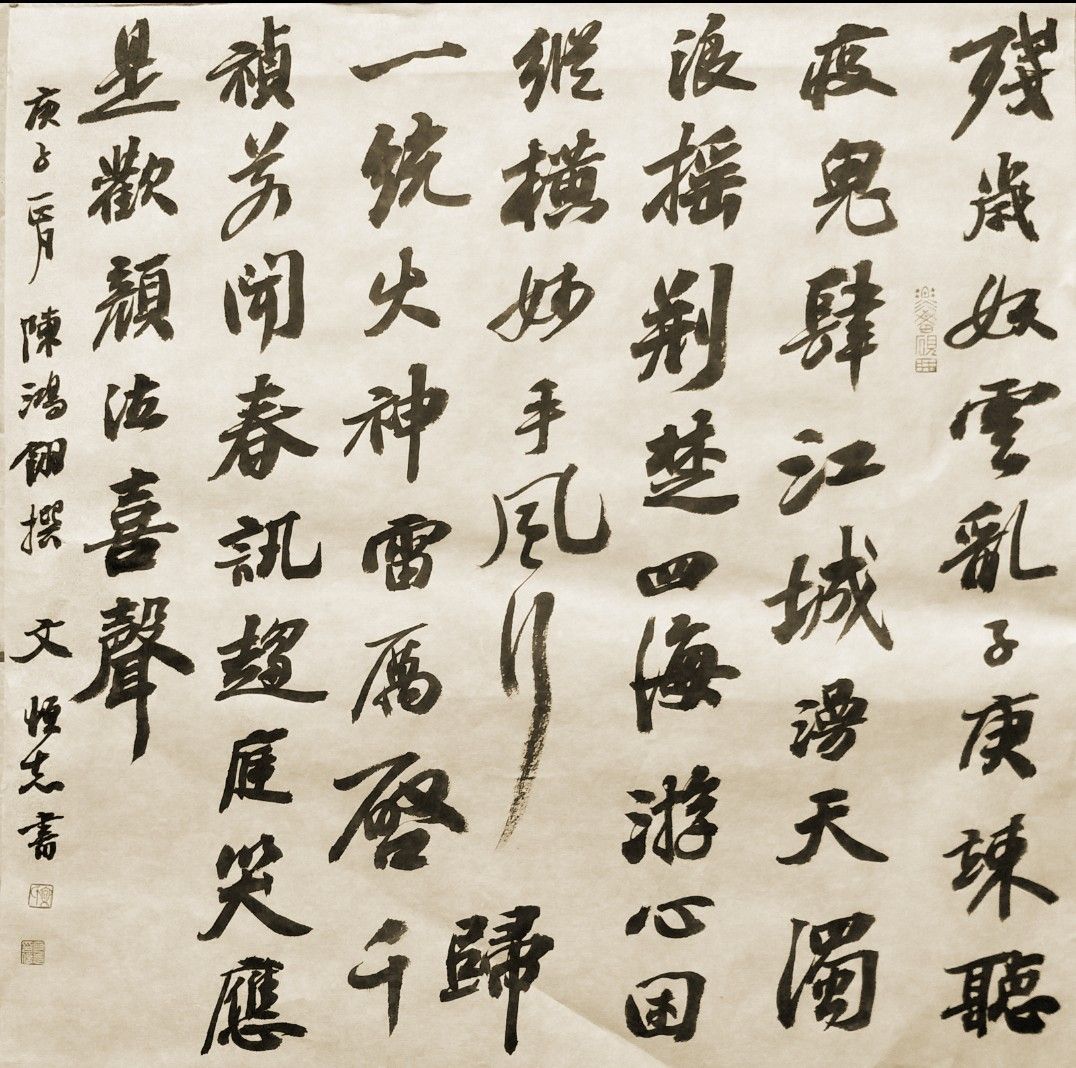 殘歲奴雲亂子庚竦聽
疫鬼肆江城漫天濁
浪搖荊楚四海游心困
縱橫妙手風行歸
一統火神雷厲啓千
禎若聞春訊趨庭笑應
是歡顏法喜聲
庚子正月 陳鴻撰 文恒志書